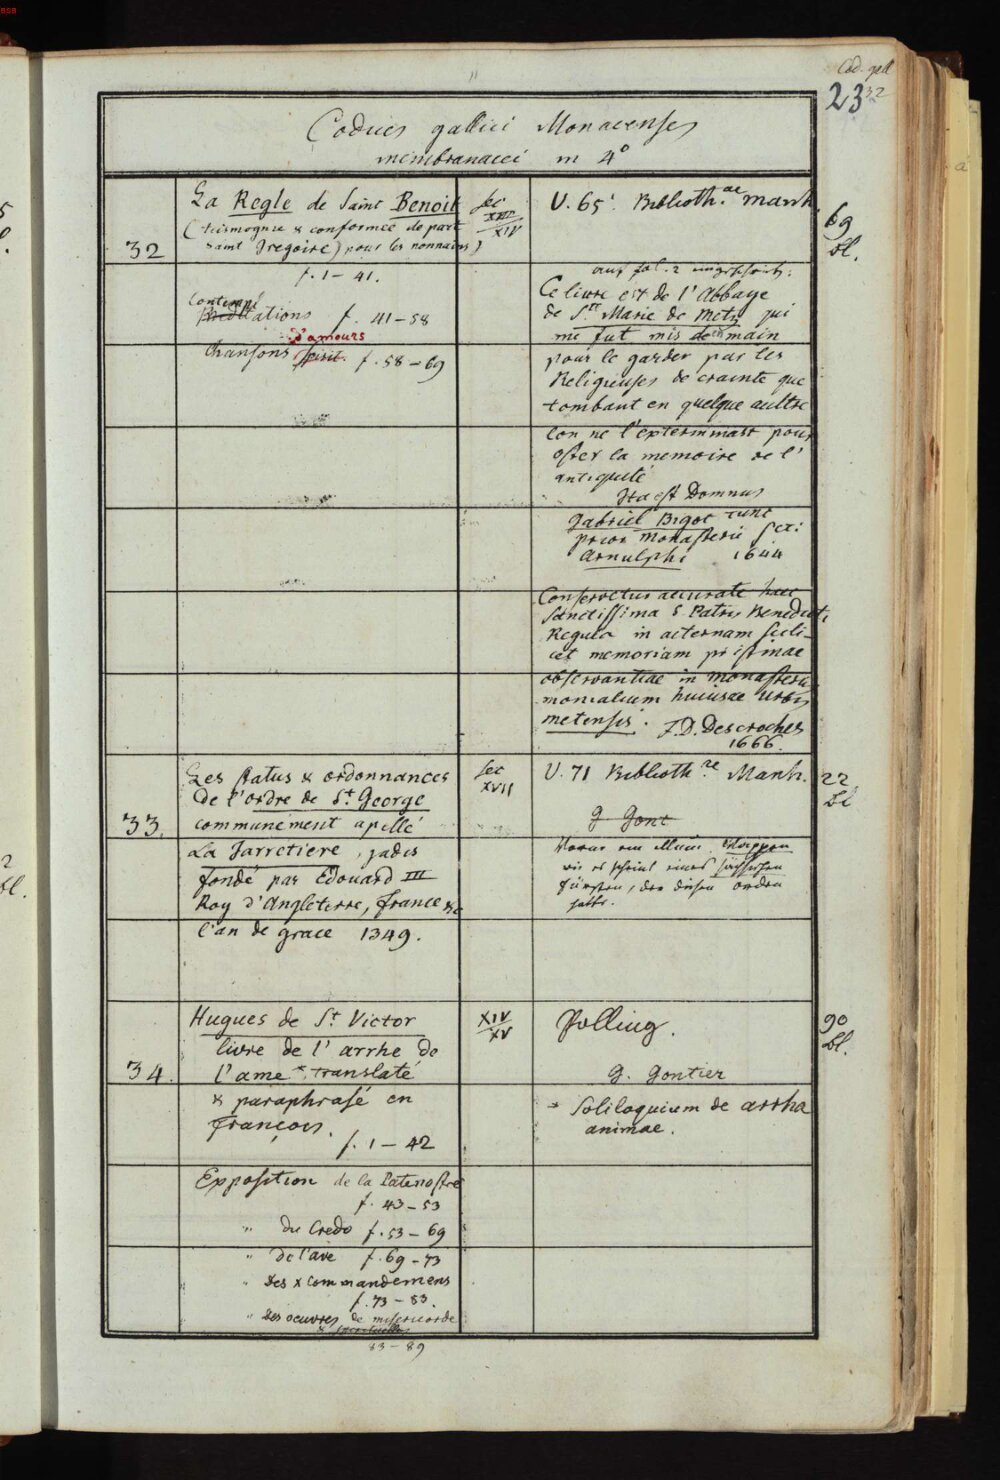 BSB
Cod. gall
23 32
Codices gallici Monacenses
membranacei in 4°
32
La Regle de Saint Benoit
(tesmognie & conformee de part
Saint Gregoire) pour les nonnains)
f. 1–41.
Contempl
Meditations f. 41–58
d'amours
Chansons spirit. f. 58–69
Sec
XIII
XIV
U. 65. Biblioth.ae Manh.
69
Bl.
auf fol. 2
Ce livre est de l'Abbaye
de S.te Marie de Metz qui
me fut mis de en main
pour le garder par les
Religieuses de crainte que
tombant en quelque aultre
lon ne l'exterminast pour
oster la memoire de l'
antiquité
Ita est Domnus
Gabriel Bigot tunc
prior monasterii Sti
Arnulphi 1644
Conservetur accurate haec
Sanctissima S. Patris Benedicti
Regula in aeternam scili-
cet memoriam pristinae
observantiae in monasterio
monialium huiusce urbis
metensis. J.D. Descroches
1666.
33.
Les status & ordonnances
de l'ordre de St. George
communement apellé
La Jarretiere, jadis
fondé par Edouard III
Roy d'Angleterre, france &c
l'an de grace 1349.
Sec
XVII
U. 71 Biblioth.ae Manh.
22
Bl
G Gont
Voran ein Wappen
wie es scheint eines sächsischen
Fürsten, der diesen Orden
hatte.
34.
Hugues de St. Victor
livre de l'arrhe de
l'ame * translaté
& paraphrasé en
françois.
f. 1–42
XIV
XV
Polling.
90
Bl.
G. Gontier
* Soliloquium de arrha
animae.
Exposition de la Patenostre
f. 43–53
" du Credo f. 53–69
" de l'ave f. 69–73
" des x commandemens
f. 73–83.
" des oeuvres de misericorde
& spirituelles
83–89